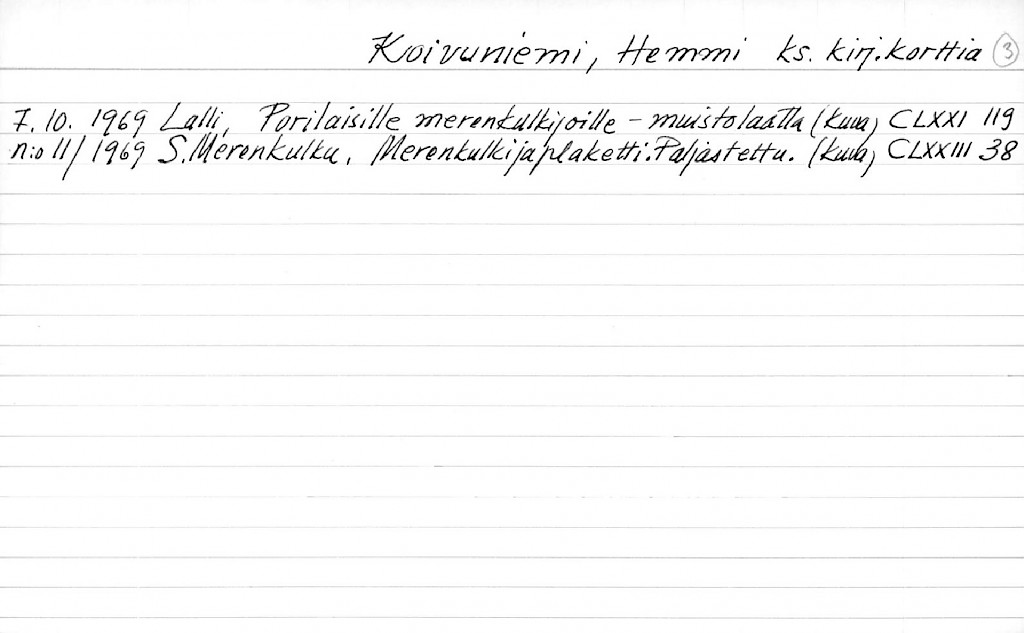 Koivuniemi, Hemmi ks. kirj.korttia 3
7.10. 1969 Lalli, Porilaisille merenkulkijoille - muistolaatta (kuva) CLXXI 119
n:o 11/1969 S.Merenkulku, Merenkulkijaplaketti.Paljastettu. (kuva) CLXXIII 38